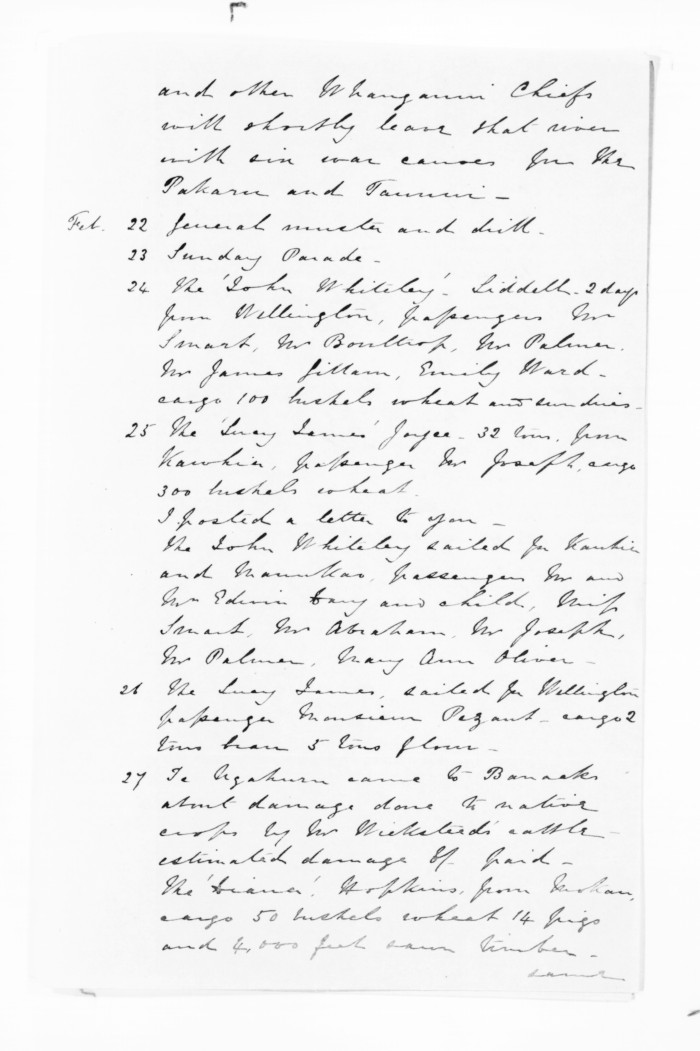 and other Whanganui Chiefs
will shortly leave that river
with six war canoes for the
Pakaru and Taununi –
Feb. 22 General muster and drill.
23 Sunday Parade –
24 The 'John Whiteley' – Liddell – 2 days
from Wellington, passengers Mr
Smart, Mr Boulltrop, Mr Palmer.
Mr James Gillam, Emily Ward –
cargo 100 bushels wheat and sundries –
25 The 'Lucy James' Joyce – 32 tons, from
Kawhia, passenger Mr Joseph, cargo
300 bushels wheat.
I posted a letter to you –
The John Whiteley sailed for Kawhia
and Manukao, passengers Mr and
Mrs Edwin Davy and child, Miss
Smart, Mr Abraham, Mr Joseph,
Mr Palmer, Mary Ann Oliver –
26 The Lucy James, sailed for Wellington
passenger Monsieur Pezant – cargo 2
tons bran 5 tons flour –
27 Te Ngahuru came to Barracks
about damage done to native
crops by Mr Wicksteed's cattle –
estimated damage paid –
The 'Diana'. Hopkins, from Mokau,
cargo 50 bushels wheat 14 pigs
and 4,000 feet sawn timber –